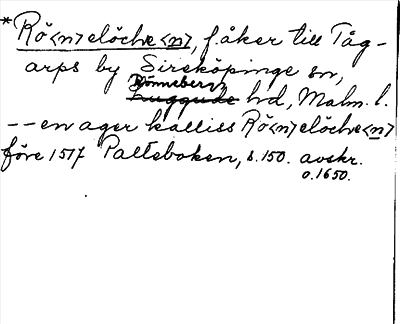 *Rö<n>elöche<n>, f. åker till Tåg-
arps by Sireköpinge sn,
Rönneberg
Luggude hd, Malm. l.
-- en ager kalliss Rö<n>elöche<n>
före 1517 Palteboken, s. 150. avskr.
o. 1650.